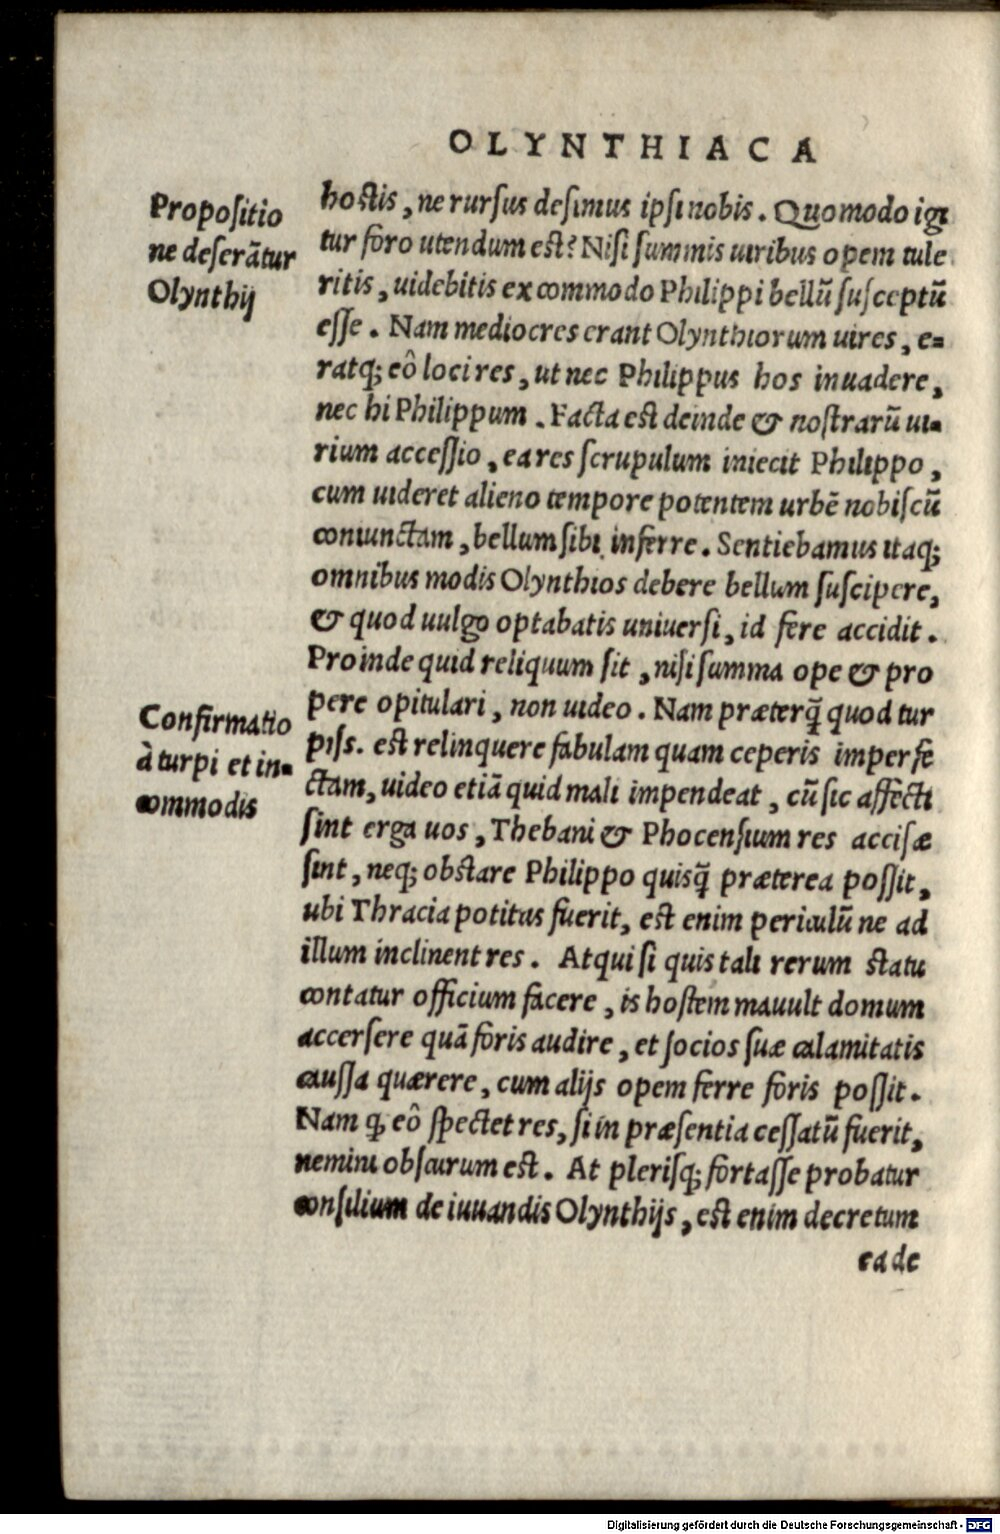 OLYNTHIACA
Propoſitio
ne deſerãtur
Olynthij
hoſtis, ne rurſus deſimus ipſi nobis. Quomodo igi
tur foro utendum est? Niſi ſummis uiribus opem tule
ritis, uidebitis ex commodo Philippi bellũ ſuſceptũ
eſſe. Nam mediocres erant Olynthiorum uires, e-
ratq; eô loci res, ut nec Philippus hos inuadere,
nec hi Philippum. Facta est deinde & noſtrarũ ui-
rium acceſſio, ea res ſcrupulum iniecit Philippo,
cum uideret alieno tempore potentem urbẽ nobiſcũ
coniunctam, bellum ſibi inferre. Sentiebamus itaq;
omnibus modis Olynthios debere bellum ſuſcipere,
& quod uulgo optabatis uniuerſi, id fere accidit.
Proinde quid reliquum ſit, niſi ſumma ope & pro
pere opitulari, non uideo. Nam præterq̃ quod tur
piſs. est relinquere fabulam quam ceperis imperfe
ctam, uideo etiã quid mali impendeat, cũ ſic affecti
ſint erga uos, Thebani & Phocenſium res acciſæ
ſint, neq; obstare Philippo quisq̃ præterea poſſit,
ubi Thracia potitus fuerit, est enim periculũ ne ad
illum inclinent res. Atqui ſi quis tali rerum statu
contatur officium facere, is hoſtem mauult domum
accerſere quã foris audire, et ſocios ſuæ calamitatis
cauſſa quærere, cum alijs opem ferre foris poſſit.
Nam ꝙ eô ſpectet res, ſi in præſentia ceſſatũ fuerit,
nemini obſcurum est. At pleriſq; fortaſſe probatur
conſilium de iuuandis Olynthijs, est enim decretum
ea de
Confirmatio
à turpi et in-
commodis
Digitalisierung gefördert durch die Deutsche Forschungsgemeinschaft - DFG